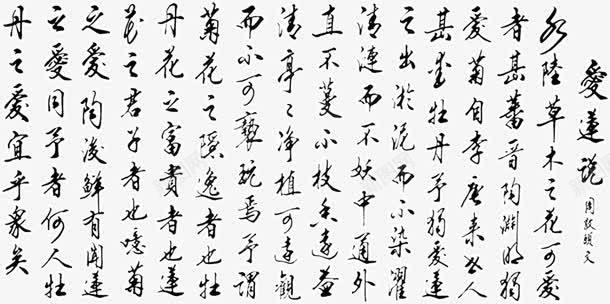 愛蓮説
周敦頤文
水陸草木之花可愛
者甚蕃晉陶淵明獨
愛菊自李唐来世人
甚愛牡丹予獨愛蓮
之出淤泥而不染濯
清漣而不妖中通外
直不蔓不枝香遠益
清亭〻净植可遠觀
而不可褻玩焉予謂
菊花之隱逸者也牡
丹花之富貴者也蓮
花之君子者也噫菊
之愛陶後鮮有聞蓮
之愛同予者何人牡
丹之愛宜乎衆矣